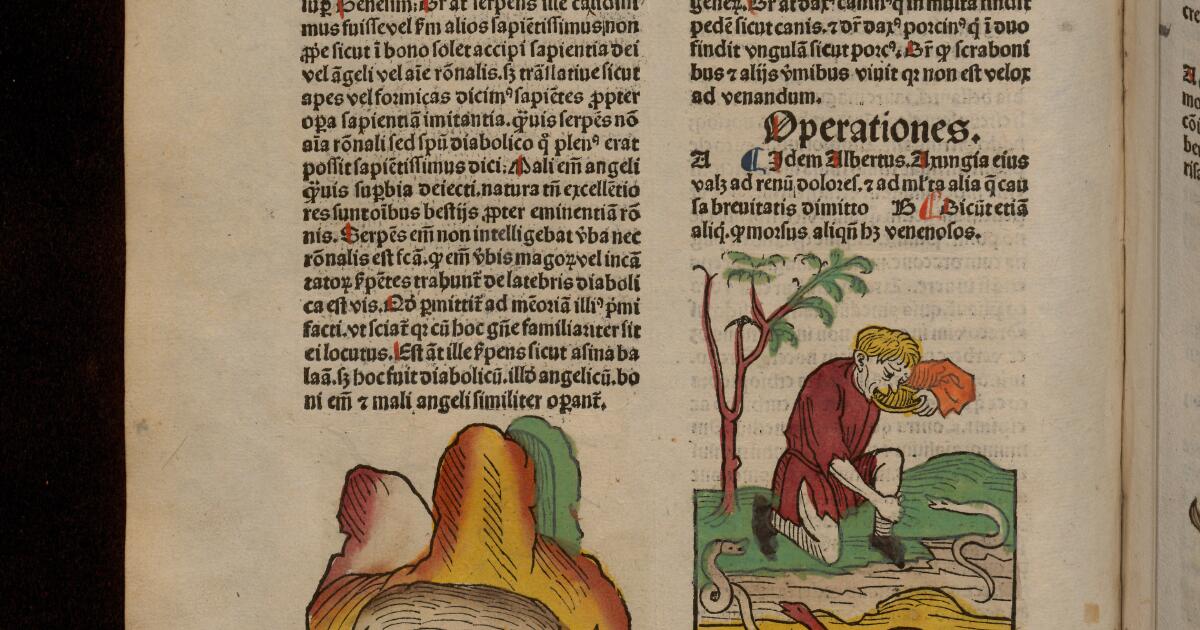 mus fuisse vel ẜm alios sapiẽtissimus, non
ꝓpe sicut ĩ bono solet accipi sapientia dei
vel ãgeli vel aĩe rõnalis. sȝ trãslatiue sicut
apes vel formicas dicimꝰ sapiẽtes ꝓpter
opa sapientiã imitantia. q̃uis serpẽs nõ
aĩa rõnali sed spũ diabolico q̊ plenꝰ erat
possit sapiẽtissimus dici: Mali em̃ angeli
q̃uis supbia deiecti. natura tñ excellẽtio
res sunt oĩbus bestijs ꝓpter eminentiã rõ
nis. Serpẽs em̃ non intelligebat v̾ba nec
rõnalis est fcã. ꝙ em̃ v̾bis magoꝝ vel incã
tatoꝝ ẜpẽtes trahunt̃ de latebris diaboli
ca est vis. Qð pmittit̃ ad mẽoriã illiꝰ pͥmi
facti. vt sciat̃ qꝛ cũ hoc gñe familiariter sit
ei locutus. Est ãt ille ẜpens sicut asina ba
laã. sȝ hoc fuit diabolicũ. illð angelicũ. bo
ni em̃ ⁊ mali angeli similiter opant̃.
pedẽ sicut canis. ⁊ dr̃ daxꝰ porcinꝰ q̇ ĩ duo
findit vngulã sicut porcꝰ. Br̃ ꝙ scraboni
bus ⁊ alijs v̾mibus viuit qꝛ non est velox
ad venandum.
Operationes.
A Idem Albertus. Axungia eius
valȝ ad renũ dolores. ⁊ ad ml̃ta alia q̃ cau
sa breuitatis dimitto B Bicũt etiã
aliq̇. ꝙ morsus aliqñ hȝ venenosos.